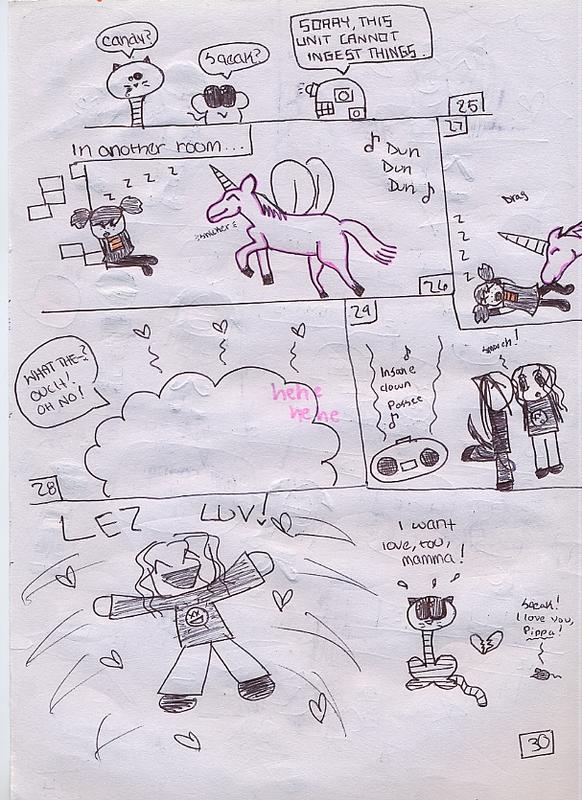 candy?
Sqeak?
SORRY, THIS
UNIT CANNOT
INGEST THINGS.
25
in another room...
z z z z
♪ Dun
Dun
Dun ♪
26
27
Drag
z
z
z
z
WHAT THE-?
OUCH!
OH NO!
hehe
hehe
28
29
Insane
clown
Possee
smooch!
LEZ LUV!
I want
love, too,
mamma!
Sqeak!
I love you,
Pippa!
30